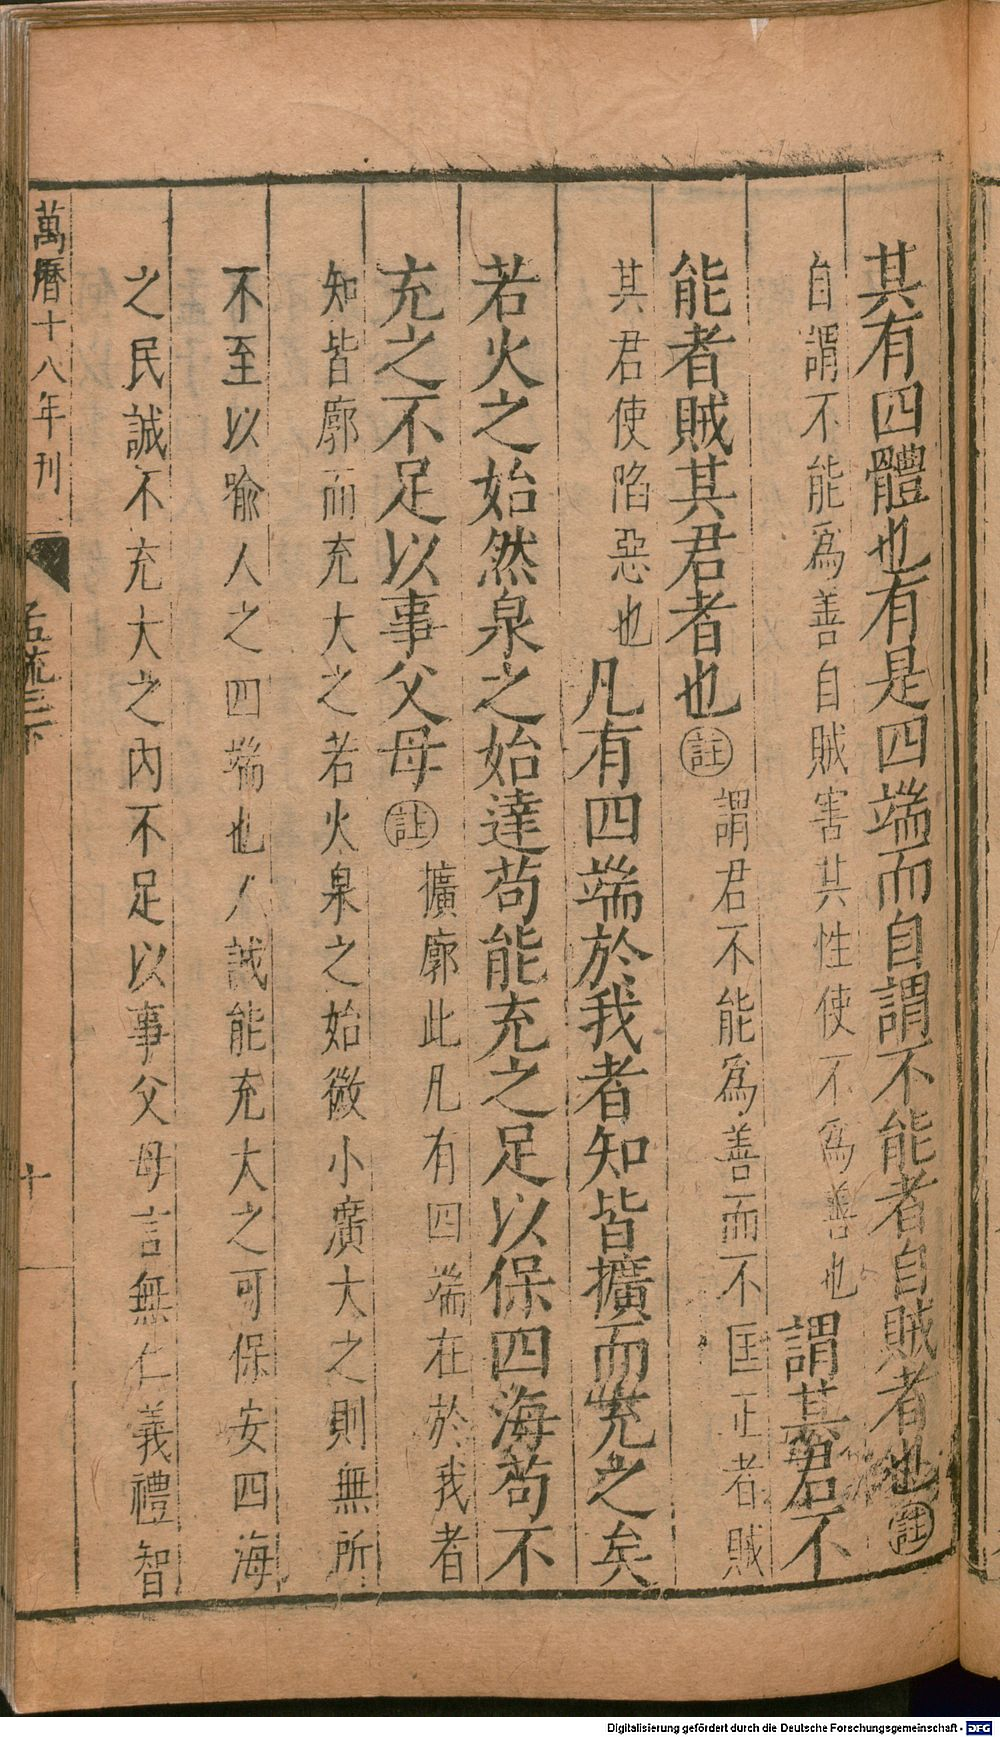 其有四體也有是四端而自謂不能者自賊者也註
自謂不能爲善自賊害其性使不爲善也謂其君不
能者賊其君者也註謂君不能爲善而不匡正者賊
其君使陷惡也凡有四端於我者知皆擴而充之矣
若火之始然泉之始達苟能充之足以保四海苟不
充之不足以事父母註擴廓此凡有四端在於我者
知皆廓而充大之若火泉之始微小廣大之則無所
不至以喻人之四端也人誠能充大之可保安四海
之民誠不充大之内不足以事父母言無仁義禮智
萬曆十八年刊
孟疏三下
十
Digitalisierung gefördert durch die Deutsche Forschungsgemeinschaft - DFG